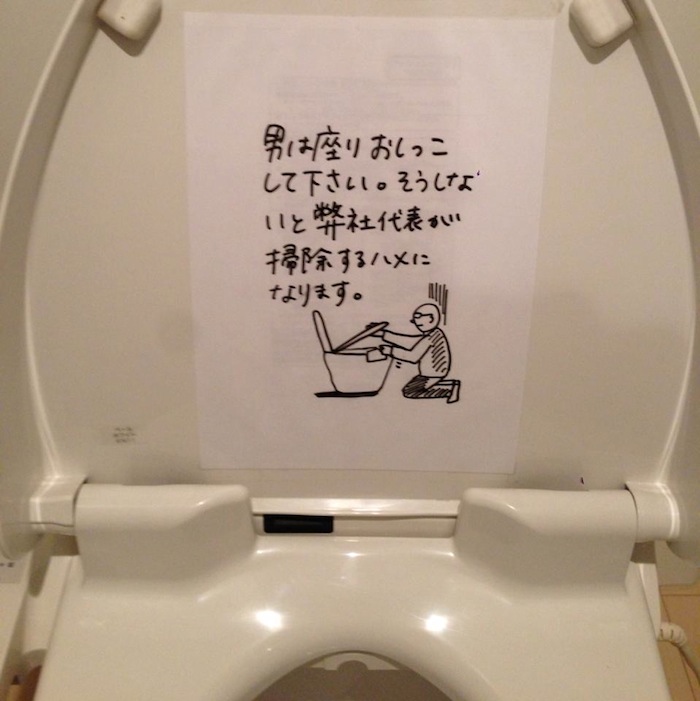 男は座りおしっこ
して下さい。そうしな
いと弊社代表が
掃除するハメに
なります。